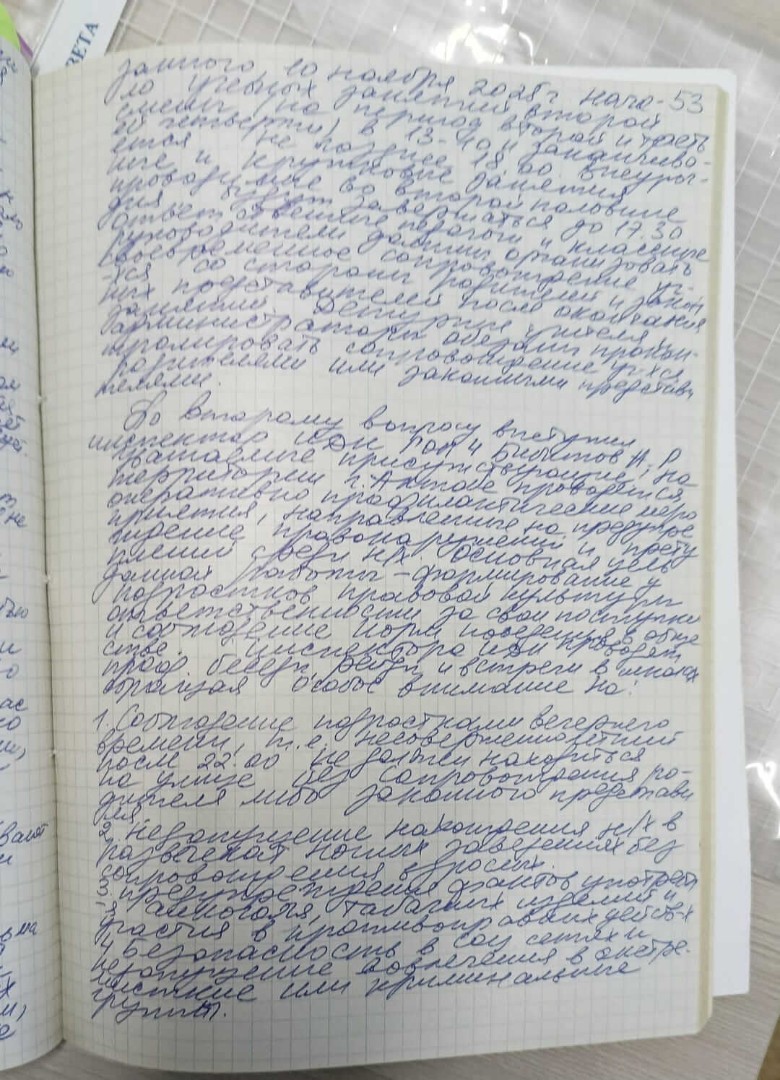 ЗЕТА
53
занного 10 ноября 2025 г нача-
ло учебных занятий второй
смены (на период второй и треть
ей четверти) в 13-10 и заканчива-
ется не позднее 18.00 внеуроч-
ные и кружковые занятия
проводимые во второй половине
дня будут завершаться до 17.30
Ответственные педагоги и классные
руководители должны организовать
своевременное сопровождение
со стороны родителей и закон
ных представителей после окончания
занятий. Дежурные учителя,
администраторы обязаны прокон-
тролировать сопровождение уч-хся
родителями или законными представи
телями.
По второму вопросу выступил
инспектор ЮДН
Уважаемые присутствующие, на
территории г. Актобе проводятся
оперативно профилактические меро
приятия, направленные на предупре
ждение правонарушений и престу
плений среди н/л. Основная цель
данной работы - формирование у
подростков правовой культуры
ответственности за свои поступки
и соблюдение норм поведения в обще
стве. Инспектора ЮДН проводят
беседы, рейды и встречи в школах
обращая особое внимание на:
1. Соблюдение подростками вечернего
времени, т.е. несовершеннолетний
после 22.00 не должен находиться
на улице без сопровождения ро-
дителя либо законного представи
теля.
2. Недопущение нахождения н/л в
развлекат. ночных заведениях без
сопровождения взрослых.
3. Предупреждения фактов употреб
-я алкоголя, табачных изделий и
участия в противоправных действ-х
4. Безопасность в соц сетях и
недопущение вовлечения в экстре-
мистские или криминальные
группы.